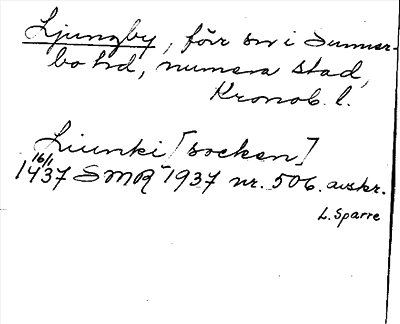 Ljungby, förr sn i Sunner-
bo hd, numera stad,
Kronob. l.
Liunki [socken]
16/1
1437 SMR 1937 nr. 506. avskr.
L. Sparre